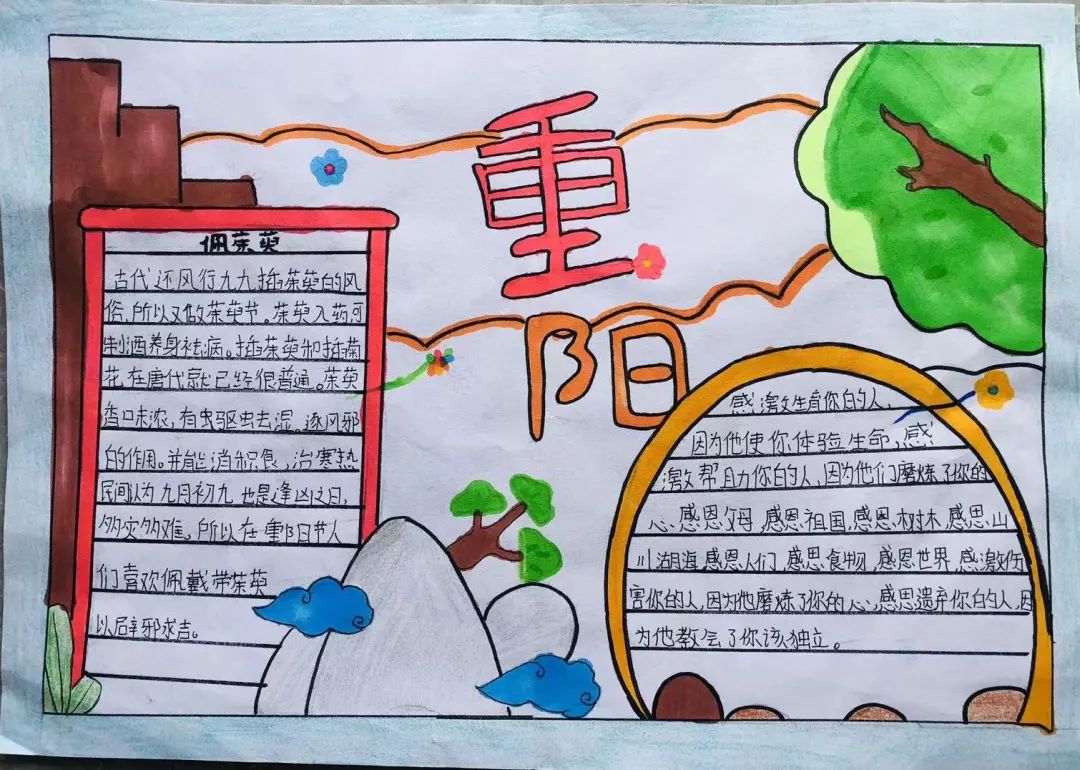 重
阳
佩茱萸
古代还风行九九插茱萸的风
俗,所以又做茱萸节。茱萸入药可
制酒养身祛病。插茱萸和插菊
花在唐代就已经很普通。茱萸
香味浓,有虫驱虫去湿。逐风邪
的作用。并能消积食,治寒热
民间认为九月初九也是逢凶之日,
多灾多难。所以在重阳日节人
们喜欢佩戴带茱萸
以辟邪求吉。
感激生育你的人,
因为他使你体验生命,感
激帮助你的人,因为他们磨炼了你的
心,感恩父母,感恩祖国,感恩树木,感恩山
川湖海,感恩人们,感恩食物,感恩世界,感激伤
害你的人,因为他磨炼了你的心,感恩遗弃你的人,因
为他教会了你该独立。